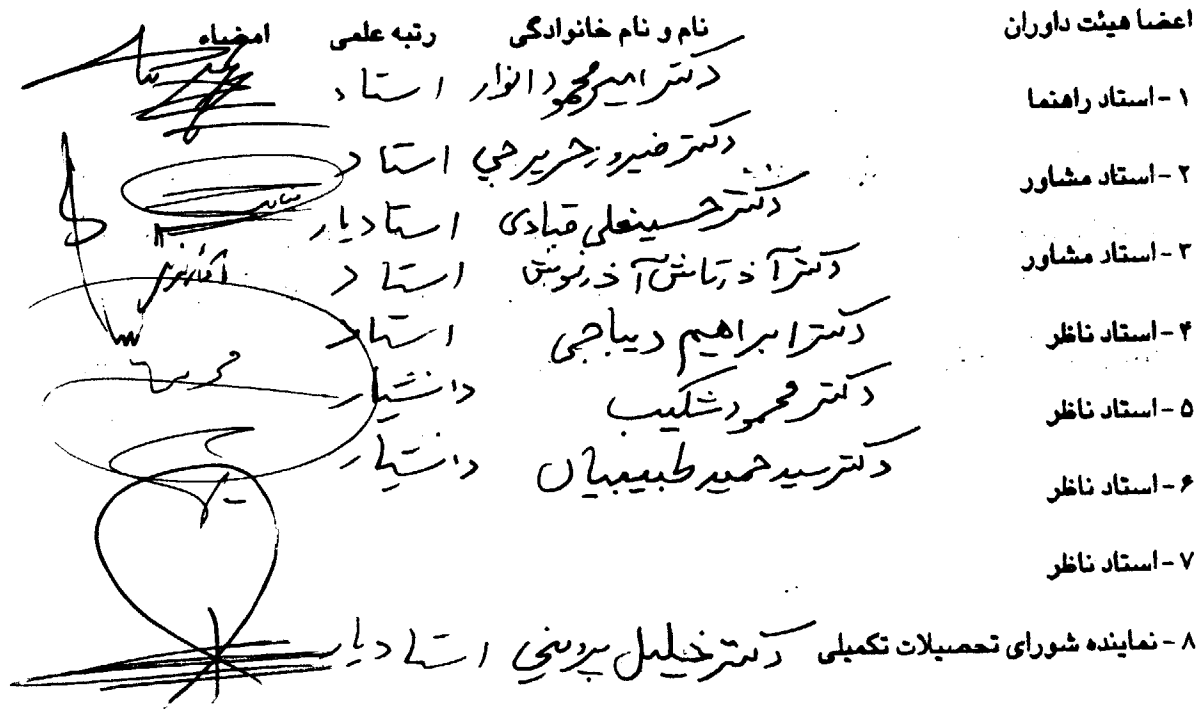 اعضا هیئت داوران نام و نام خانوادگی رتبه علمی امضاء
۱ - استاد راهنما دکتر امیرمحمود انوار استاد
۲ - استاد مشاور دکتر فیروز حریرچی استاد
۳ - استاد مشاور دکتر حسینعلی قبادی استادیار
۴ - استاد ناظر دکتر آذرتاش آذرنوش استاد
۵ - استاد ناظر دکتر ابراهیم دیباجی استاد
۶ - استاد ناظر دکتر محمود شکیب دانشیار
۷ - استاد ناظر دکتر سید حمید طبیبیان دانشیار
۸ - نماینده شورای تحصیلات تکمیلی دکتر خلیل پروینی استادیار